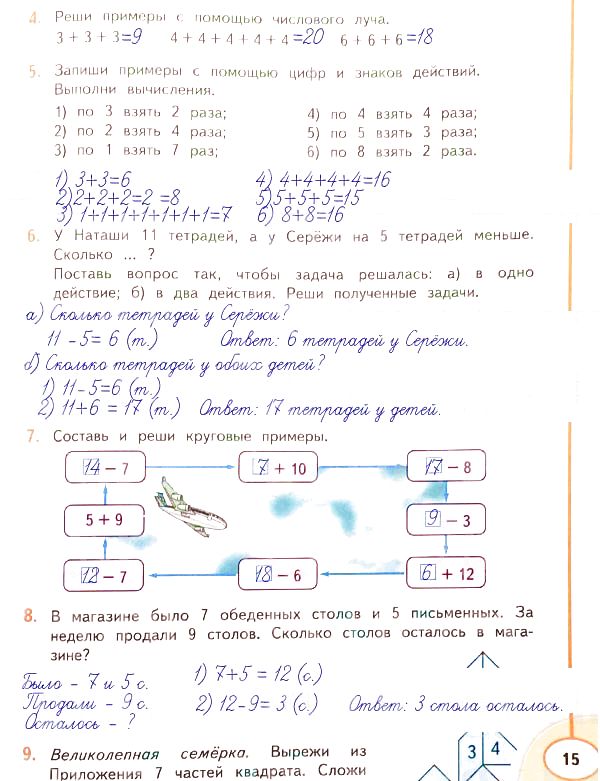 4. Реши примеры с помощью числового луча.
3 + 3 + 3 =9 4 + 4 + 4 + 4 + 4 =20 6 + 6 + 6 =18
5. Запиши примеры с помощью цифр и знаков действий.
Выполни вычисления.
1) по 3 взять 2 раза; 4) по 4 взять 4 раза;
2) по 2 взять 4 раза; 5) по 5 взять 3 раза;
3) по 1 взять 7 раз; 6) по 8 взять 2 раза.
1) 3+3=6 4) 4+4+4+4=16
2)2+2+2=2 =8 5)5+5+5=15
3) 1+1+1+1+1+1+1=7 6) 8+8=16
6. У Наташи 11 тетрадей, а у Серёжи на 5 тетрадей меньше.
Сколько ... ?
Поставь вопрос так, чтобы задача решалась: а) в одно
действие; б) в два действия. Реши полученные задачи.
а) Сколько тетрадей у Серёжи?
11 - 5= 6 (т.) Ответ: 6 тетрадей у Серёжи.
б) Сколько тетрадей у обоих детей?
1) 11-5=6 (т.)
2) 11+6 = 17 (т.) Ответ: 17 тетрадей у детей.
7. Составь и реши круговые примеры.
14 – 7 7 + 10 17 – 8
5 + 9 9 – 3
12 – 7 18 – 6 6 + 12
8. В магазине было 7 обеденных столов и 5 письменных. За
неделю продали 9 столов. Сколько столов осталось в мага-
зине?
Было - 7 и 5 с. 1) 7+5 = 12 (с.)
Продали - 9 с. 2) 12-9= 3 (с.) Ответ: 3 стола осталось.
Осталось - ?
9. Великолепная семёрка. Вырежи из
Приложения 7 частей квадрата. Сложи
3 4
15